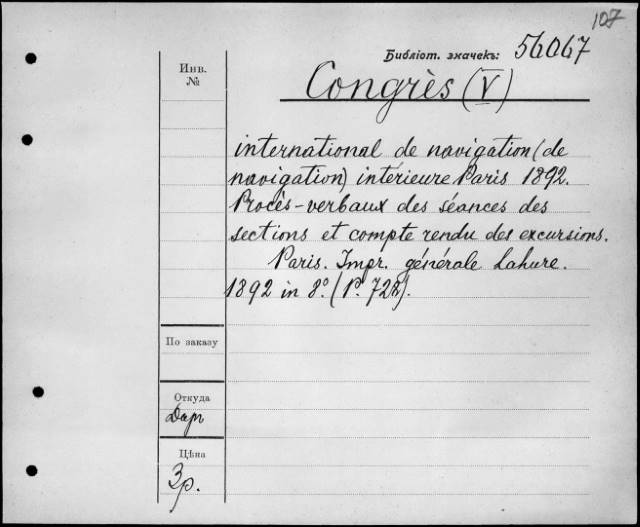 107
Библіот. значекъ: 56067
Инв.
№
Congrès (V)
international de navigation (de
navigation) intérieure Paris 1892.
Procès-verbaux des séances des
sections et compte rendu des excursions.
Paris. Impr. générale Lahure.
1892 in 8º. (P. 728).
По заказу
Откуда
Дар
Цѣна
3 р.